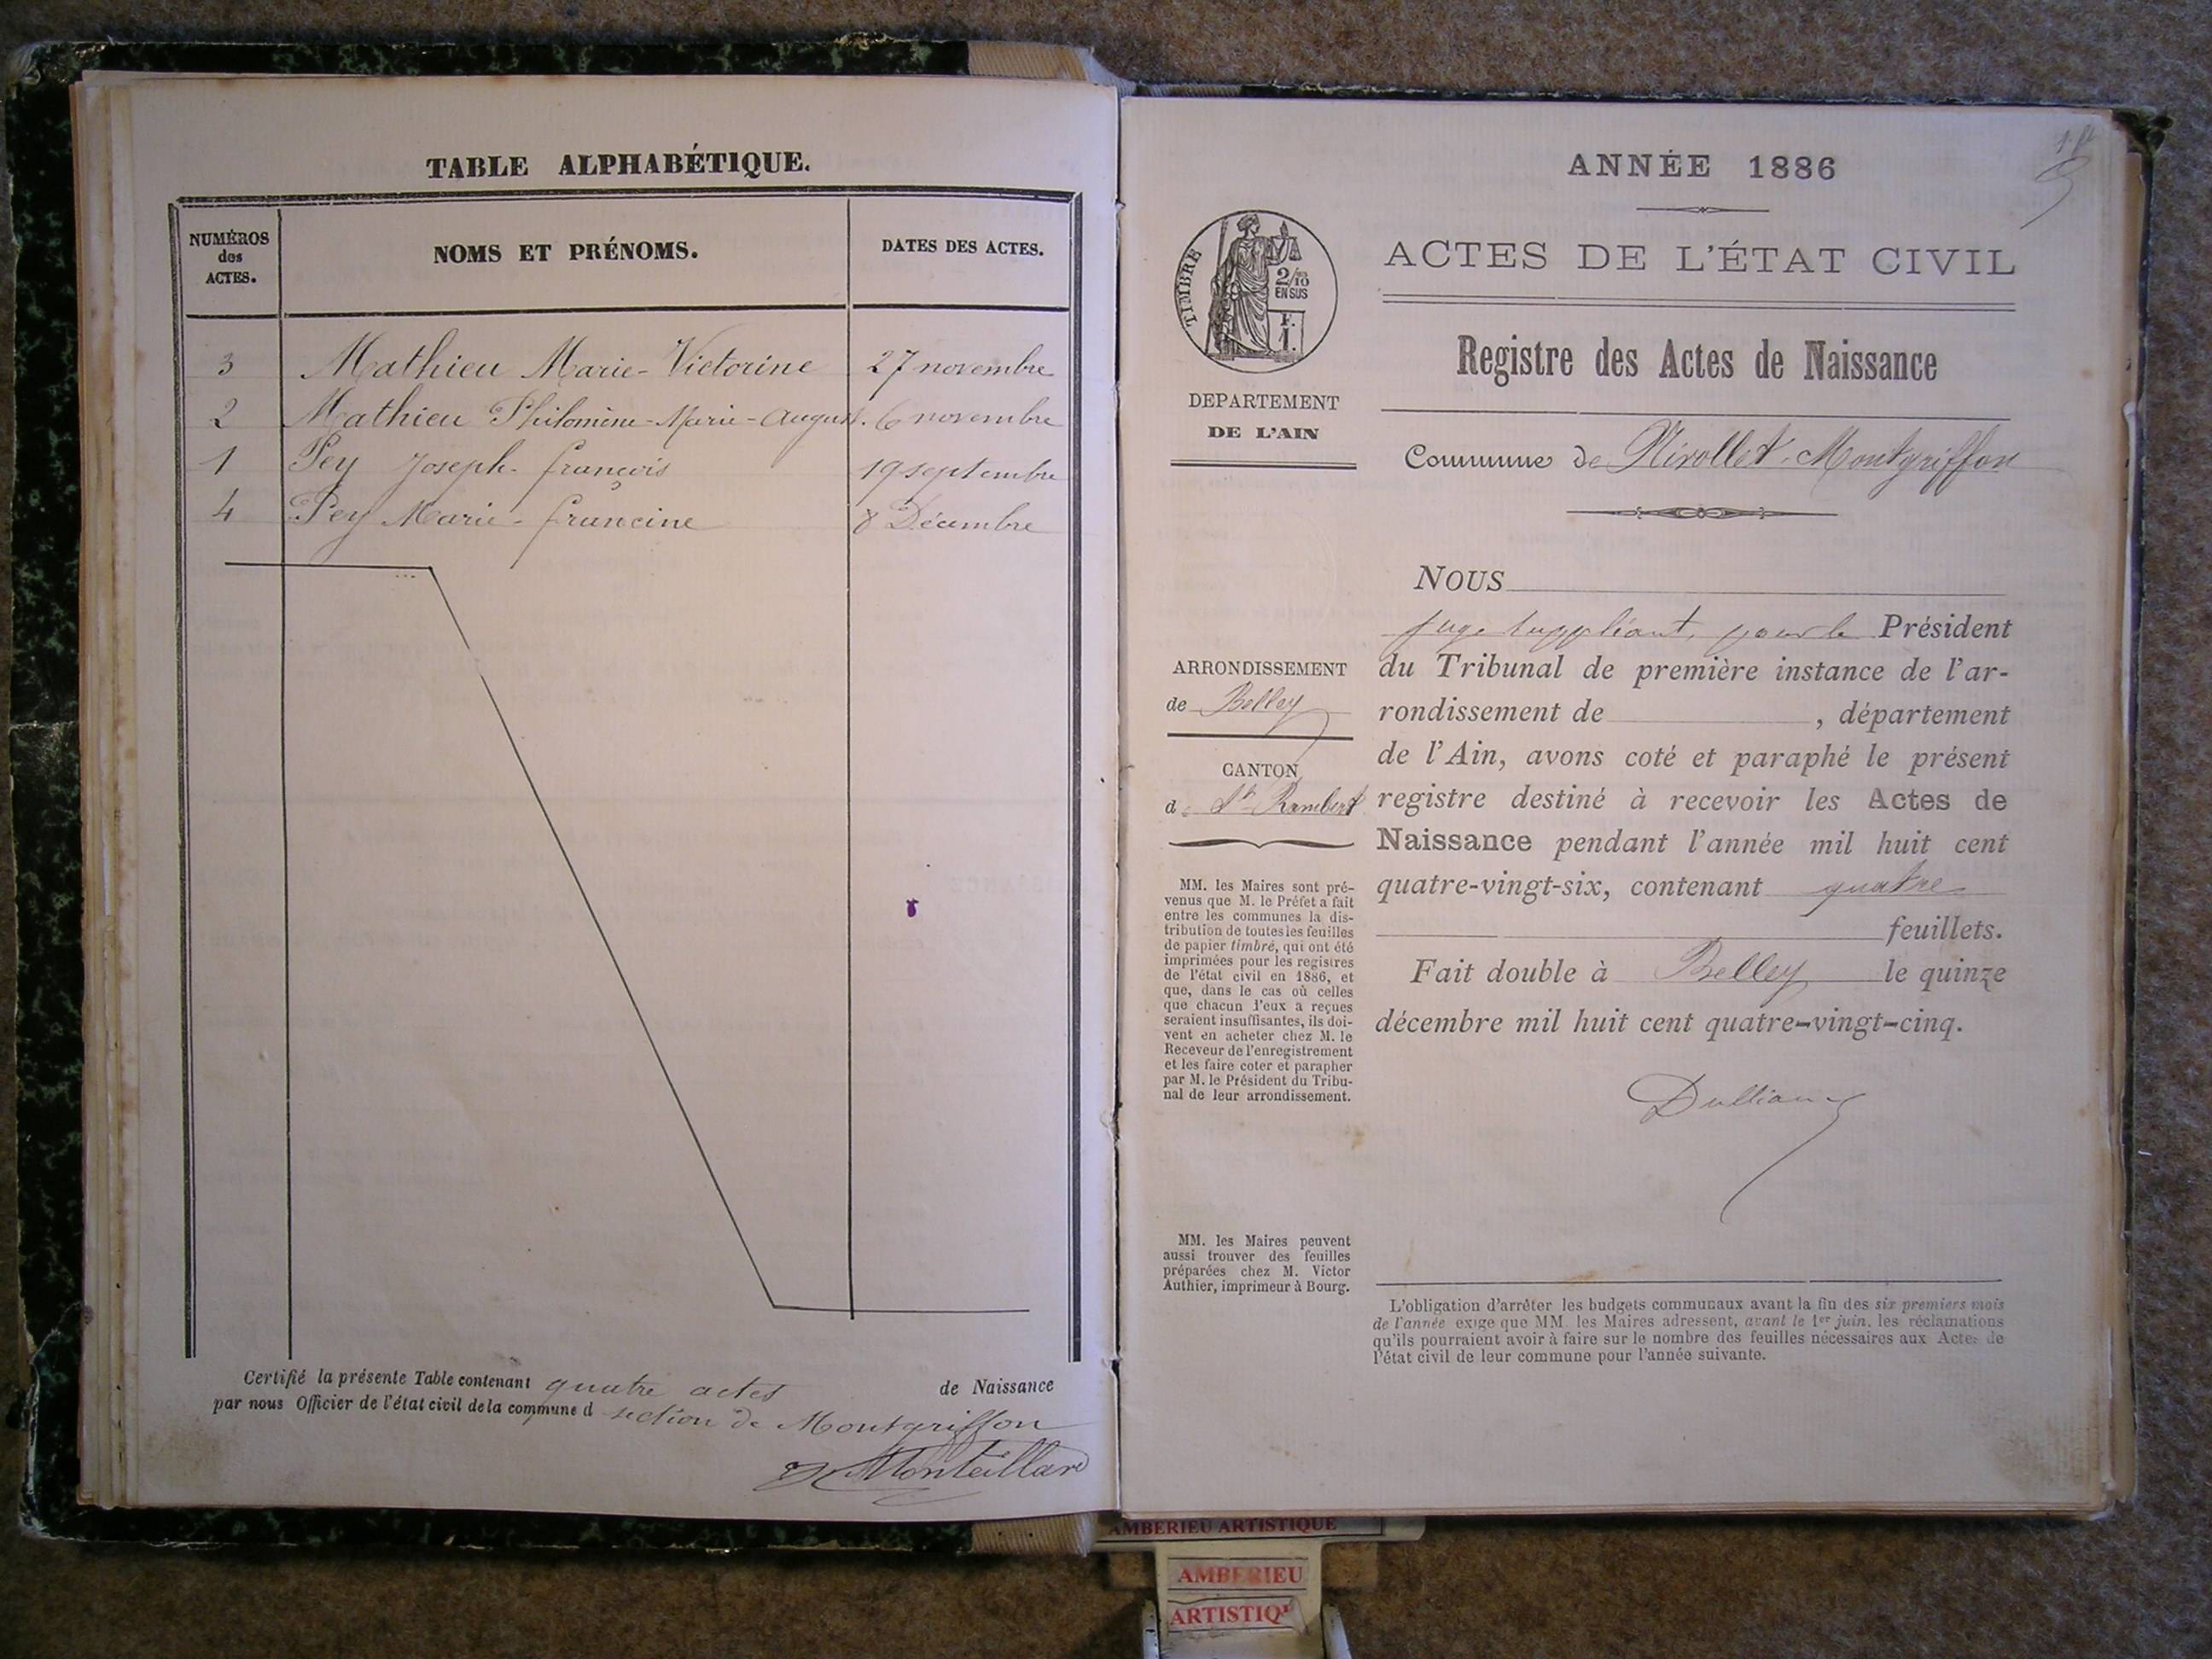 TABLE ALPHABÉTIQUE.
NUMÉROS
des
ACTES.
NOMS ET PRÉNOMS.
DATES DES ACTES.
3 Mathieu Marie-Victorine 27 novembre
2 Mathieu Philomène-Marie-August. 6 novembre
1 Pey Joseph-françois 19 septembre
4 Pey Marie-francine 8 Décembre
Certifié la présente Table contenant quatre actes de Naissance
par nous Officier de l'état civil de la commune d section de Montgriffon
Monteillard
ANNÉE 1886
TIMBRE
2/10
EN SUS
F.
1.
ACTES DE L'ÉTAT CIVIL
Registre des Actes de Naissance
DEPARTEMENT
DE L'AIN
Commune de Nivollet-Montgriffon
NOUS
juge suppléant, pour le Président
du Tribunal de première instance de l'ar-
rondissement de , département
de l'Ain, avons coté et paraphé le présent
registre destiné à recevoir les Actes de
Naissance pendant l'année mil huit cent
quatre-vingt-six, contenant quatre
feuillets.
Fait double à Belley le quinze
décembre mil huit cent quatre-vingt-cinq.
ARRONDISSEMENT
de Belley
CANTON
d St Rambert
MM. les Maires sont pré-
venus que M. le Préfet a fait
entre les communes la dis-
tribution de toutes les feuilles
de papier timbré, qui ont été
imprimées pour les registres
de l'état civil en 1886, et
que, dans le cas où celles
que chacun d'eux a reçues
seraient insuffisantes, ils doi-
vent en acheter chez M. le
Receveur de l'enregistrement
et les faire coter et parapher
par M. le Président du Tribu-
nal de leur arrondissement.
MM. les Maires peuvent
aussi trouver des feuilles
préparées chez M. Victor
Authier, imprimeur à Bourg.
L'obligation d'arrêter les budgets communaux avant la fin des six premiers mois
de l'année exige que MM. les Maires adressent, avant le 1er juin, les réclamations
qu'ils pourraient avoir à faire sur le nombre des feuilles nécessaires aux Actes de
l'état civil de leur commune pour l'année suivante.
AMBERIEU ARTISTIQUE
AMBERIEU
ARTISTIQU